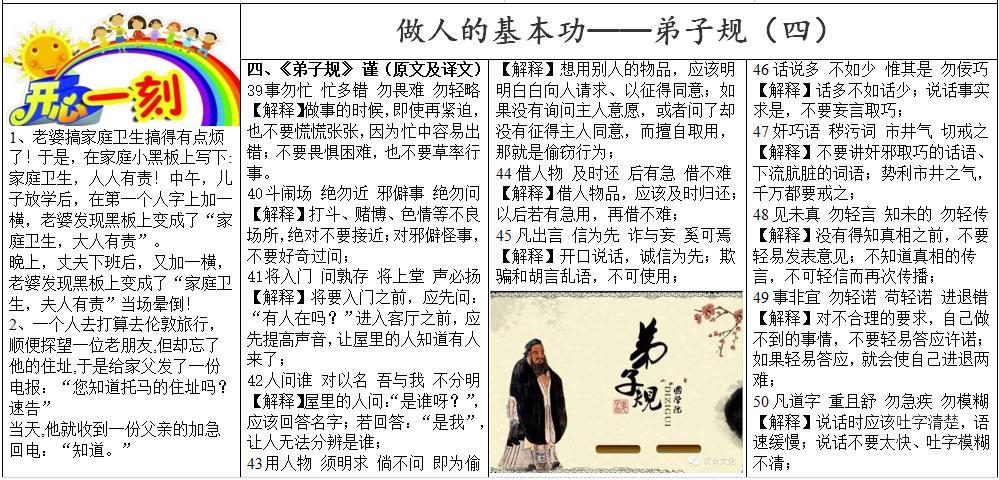 开心一刻
1、老婆搞家庭卫生搞得有点烦
了！于是，在家庭小黑板上写下:
家庭卫生，人人有责！中午，儿
子放学后，在第一个人字上加一
横，老婆发现黑板上变成了“家
庭卫生，大人有责”。
晚上，丈夫下班后，又加一横，
老婆发现黑板上变成了“家庭卫
生，夫人有责”当场晕倒！
2、一个人去打算去伦敦旅行，
顺便探望一位老朋友,但却忘了
他的住址,于是给家父发了一份
电报：“您知道托马的住址吗？
速告”
当天,他就收到一份父亲的加急
回电：“知道。”
做人的基本功——弟子规（四）
四、《弟子规》 谨（原文及译文）
39事勿忙 忙多错 勿畏难 勿轻略
【解释】做事的时候,即使再紧迫,
也不要慌慌张张，因为忙中容易出
错；不要畏惧困难，也不要草率行
事。
40斗闹场 绝勿近 邪僻事 绝勿问
【解释】打斗、赌博、色情等不良
场所,绝对不要接近;对邪僻怪事,
不要好奇过问；
41将入门 问孰存 将上堂 声必扬
【解释】将要入门之前，应先问：
“有人在吗？”进入客厅之前，应
先提高声音，让屋里的人知道有人
来了；
42人问谁 对以名 吾与我 不分明
【解释】屋里的人问:“是谁呀？”,
应该回答名字；若回答：“是我”,
让人无法分辨是谁；
43用人物 须明求 倘不问 即为偷
【解释】想用别人的物品，应该明
明白白向人请求、以征得同意；如
果没有询问主人意愿，或者问了却
没有征得主人同意，而擅自取用，
那就是偷窃行为；
44 借人物 及时还 后有急 借不难
【解释】借人物品，应该及时归还；
以后若有急用，再借不难；
45 凡出言 信为先 诈与妄 奚可焉
【解释】开口说话，诚信为先；欺
骗和胡言乱语，不可使用；
弟子规
國學院
DIZIGUI
汉食文化
46 话说多 不如少 惟其是 勿佞巧
【解释】话多不如话少；说话事实
求是，不要妄言取巧；
47 奸巧语 秽污词 市井气 切戒之
【解释】不要讲奸邪取巧的话语、
下流肮脏的词语；势利市井之气，
千万都要戒之；
48 见未真 勿轻言 知未的 勿轻传
【解释】没有得知真相之前，不要
轻易发表意见；不知道真相的传
言，不可轻信而再次传播；
49 事非宜 勿轻诺 苟轻诺 进退错
【解释】对不合理的要求，自己做
不到的事情，不要轻易答应许诺；
如果轻易答应，就会使自己进退两
难；
50 凡道字 重且舒 勿急疾 勿模糊
【解释】说话时应该吐字清楚，语
速缓慢；说话不要太快、吐字模糊
不清；